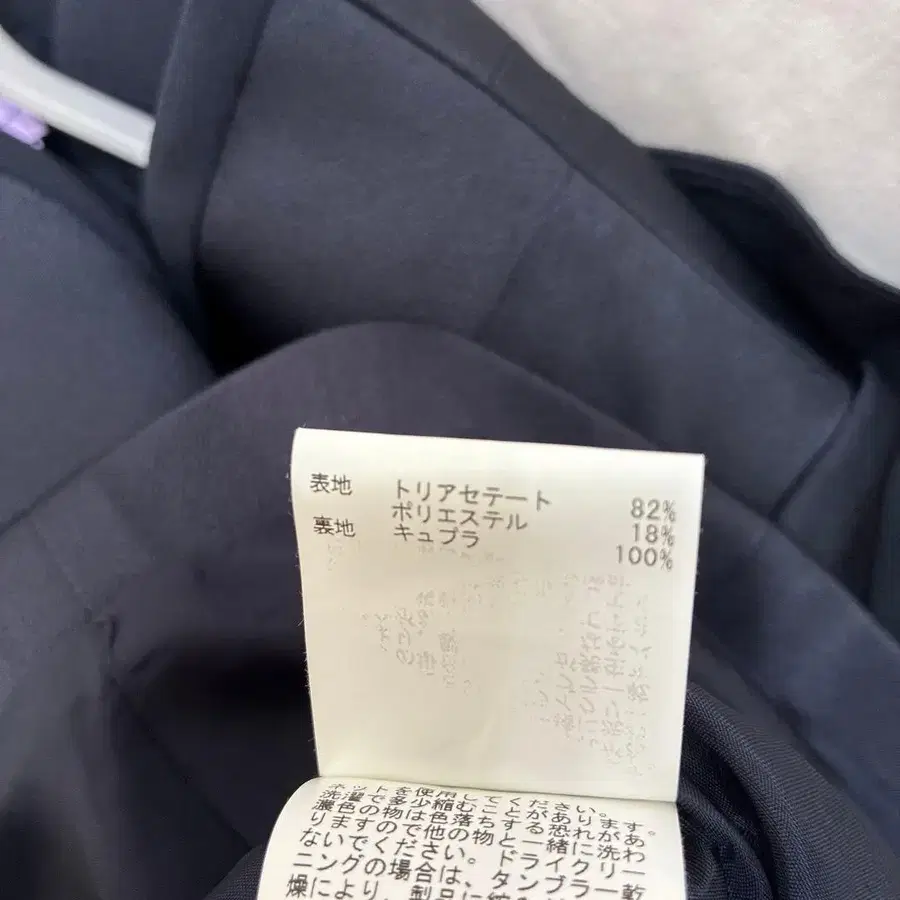 表地 トリアセテート 82%
ポリエステル 18%
裏地 キュプラ 100%
ネットを使用してください。
洗濯で多少縮むことがあります。
濃色の物は色落ちする恐れがあ
りますので他の物と一緒に洗わ
ないでください。ドライクリー
ニングの場合は、タンブラー乾
燥により、製品に